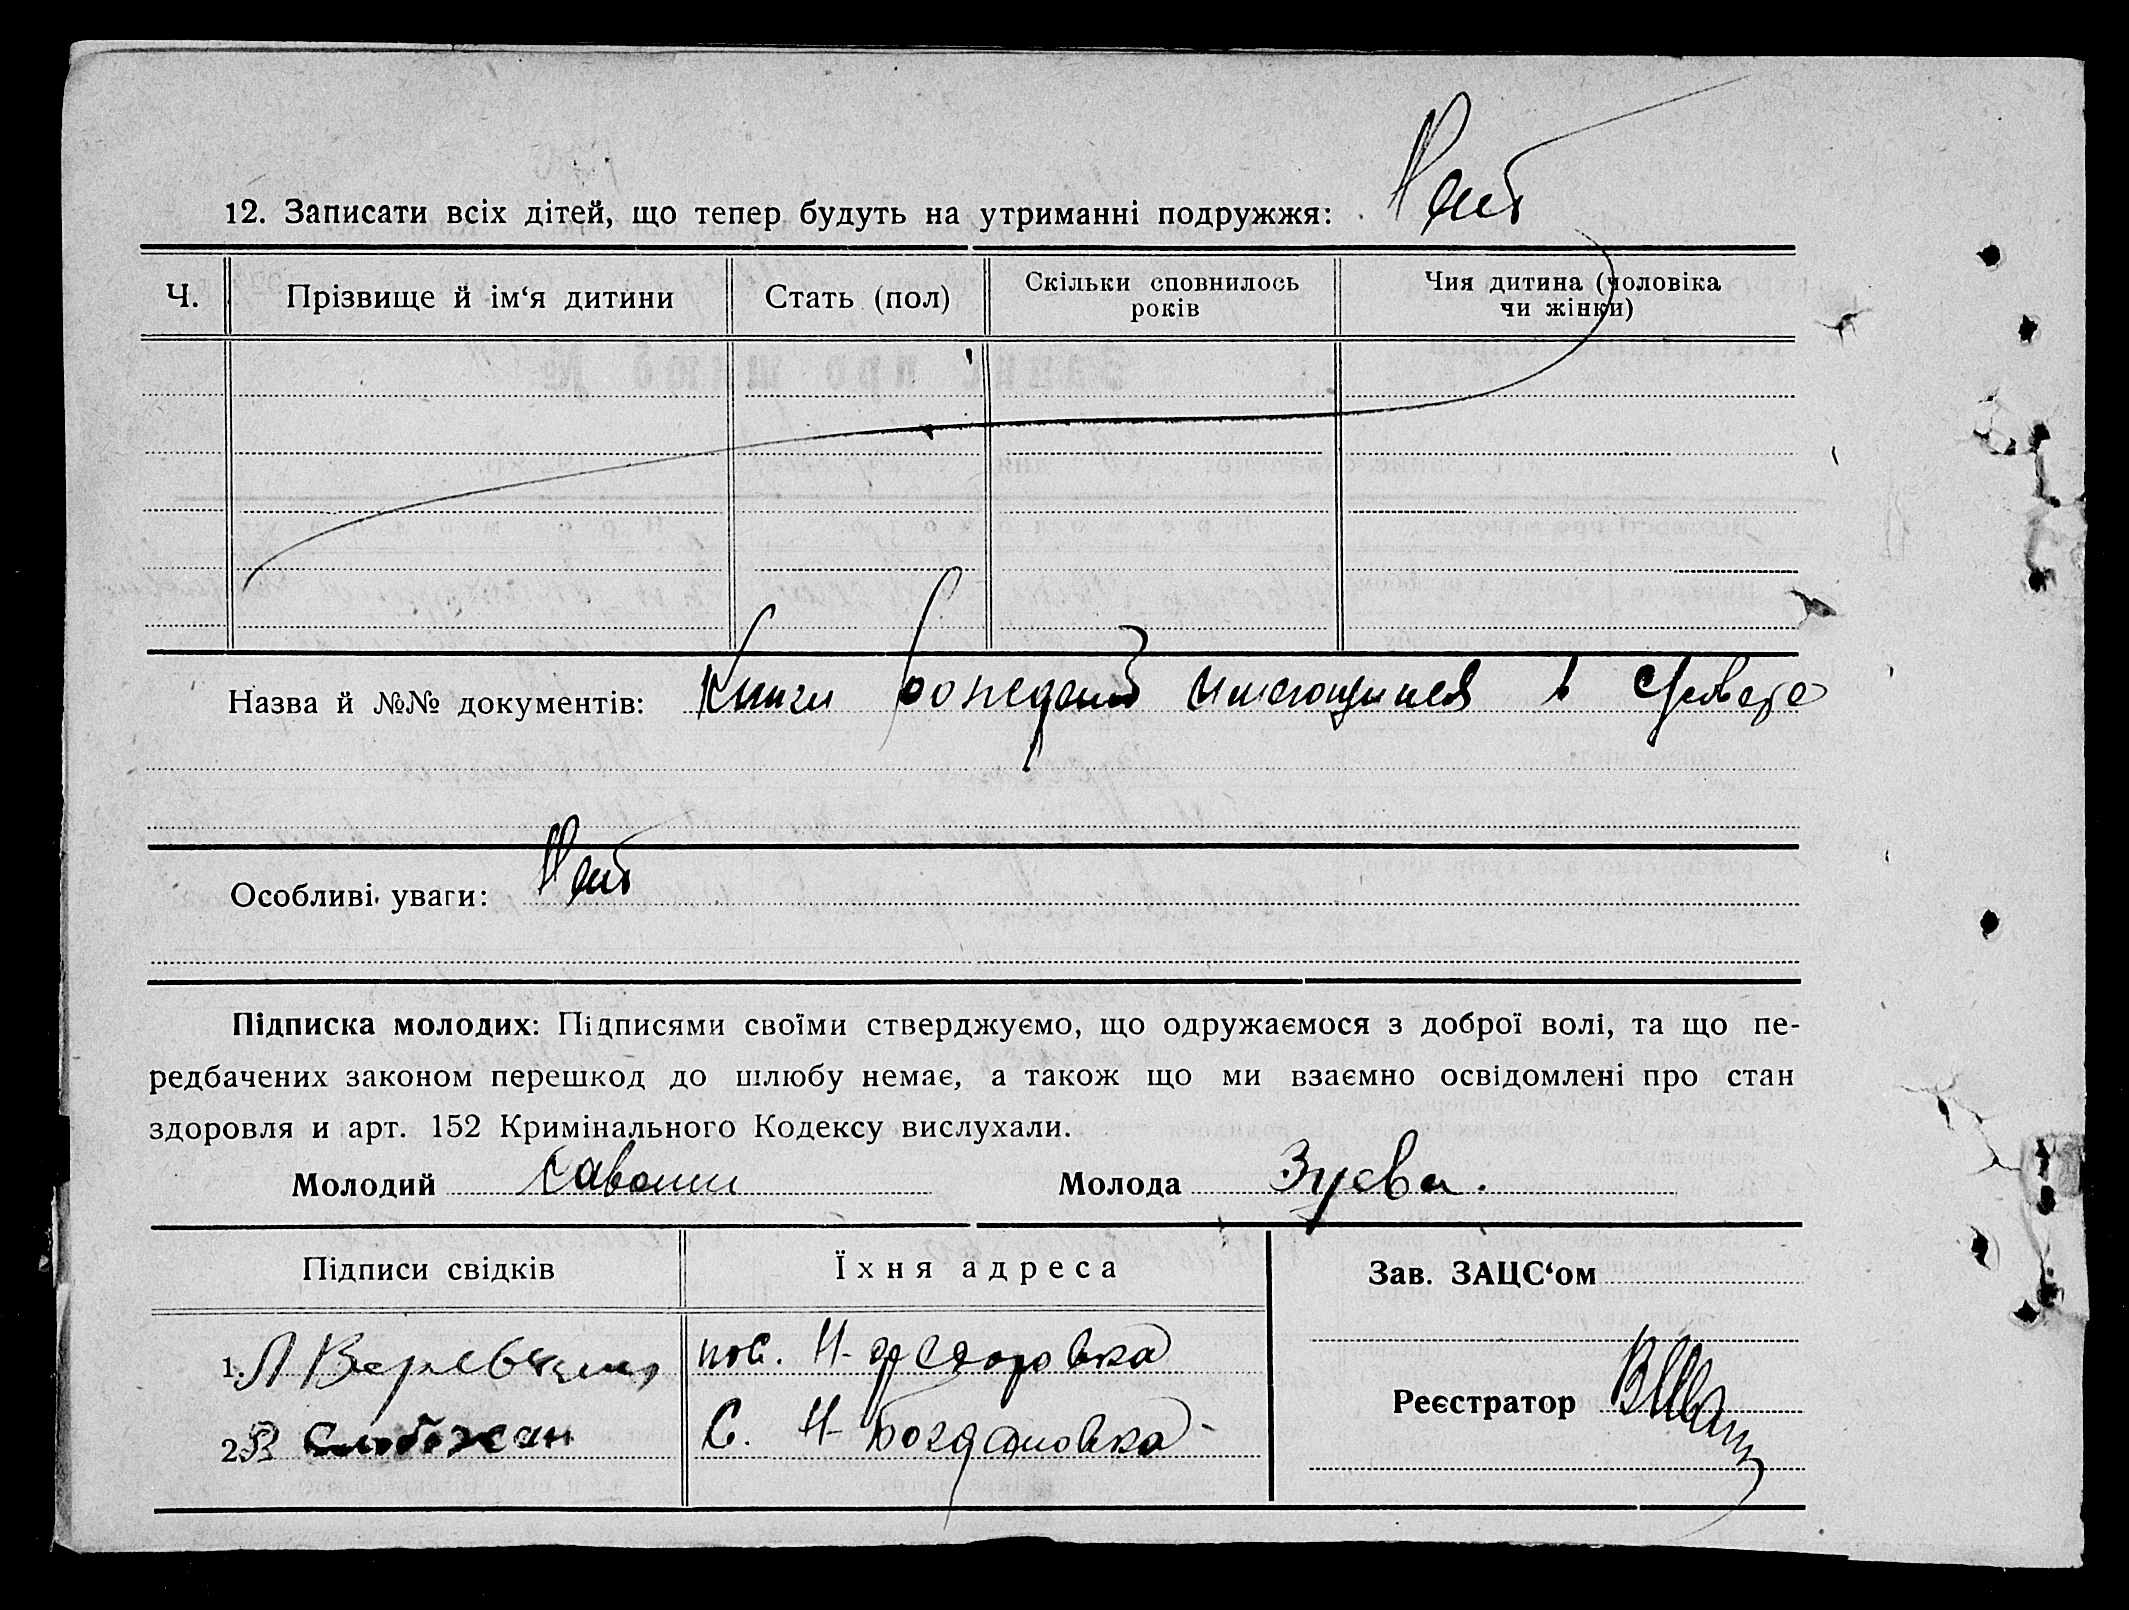 12. Записати всіх дітей, що тепер будуть на утриманні подружжя: Нет
Ч. Прізвище й ім‘я дитини Стать (пол) Скільки сповнилось років Чия дитина (чоловіка чи жінки)
Назва й №№ документів: Книги рождений имеющиися в
Особливі уваги: Нет
Підписка молодих: Підписями своїми стверджуємо, що одружаємося з доброї волі, та що пе-
редбачених законом перешкод до шлюбу немає, а також що ми взаємно освідомлені про стан
здоровля и арт. 152 Кримінального Кодексу вислухали.
Молодий Молода Зуева.
Підписи свідків Їхня адреса Зав. ЗАЦС‘ом
1. пос. Н-федоровка
2. Слобожан С. Н-Богдановка
Реєстратор